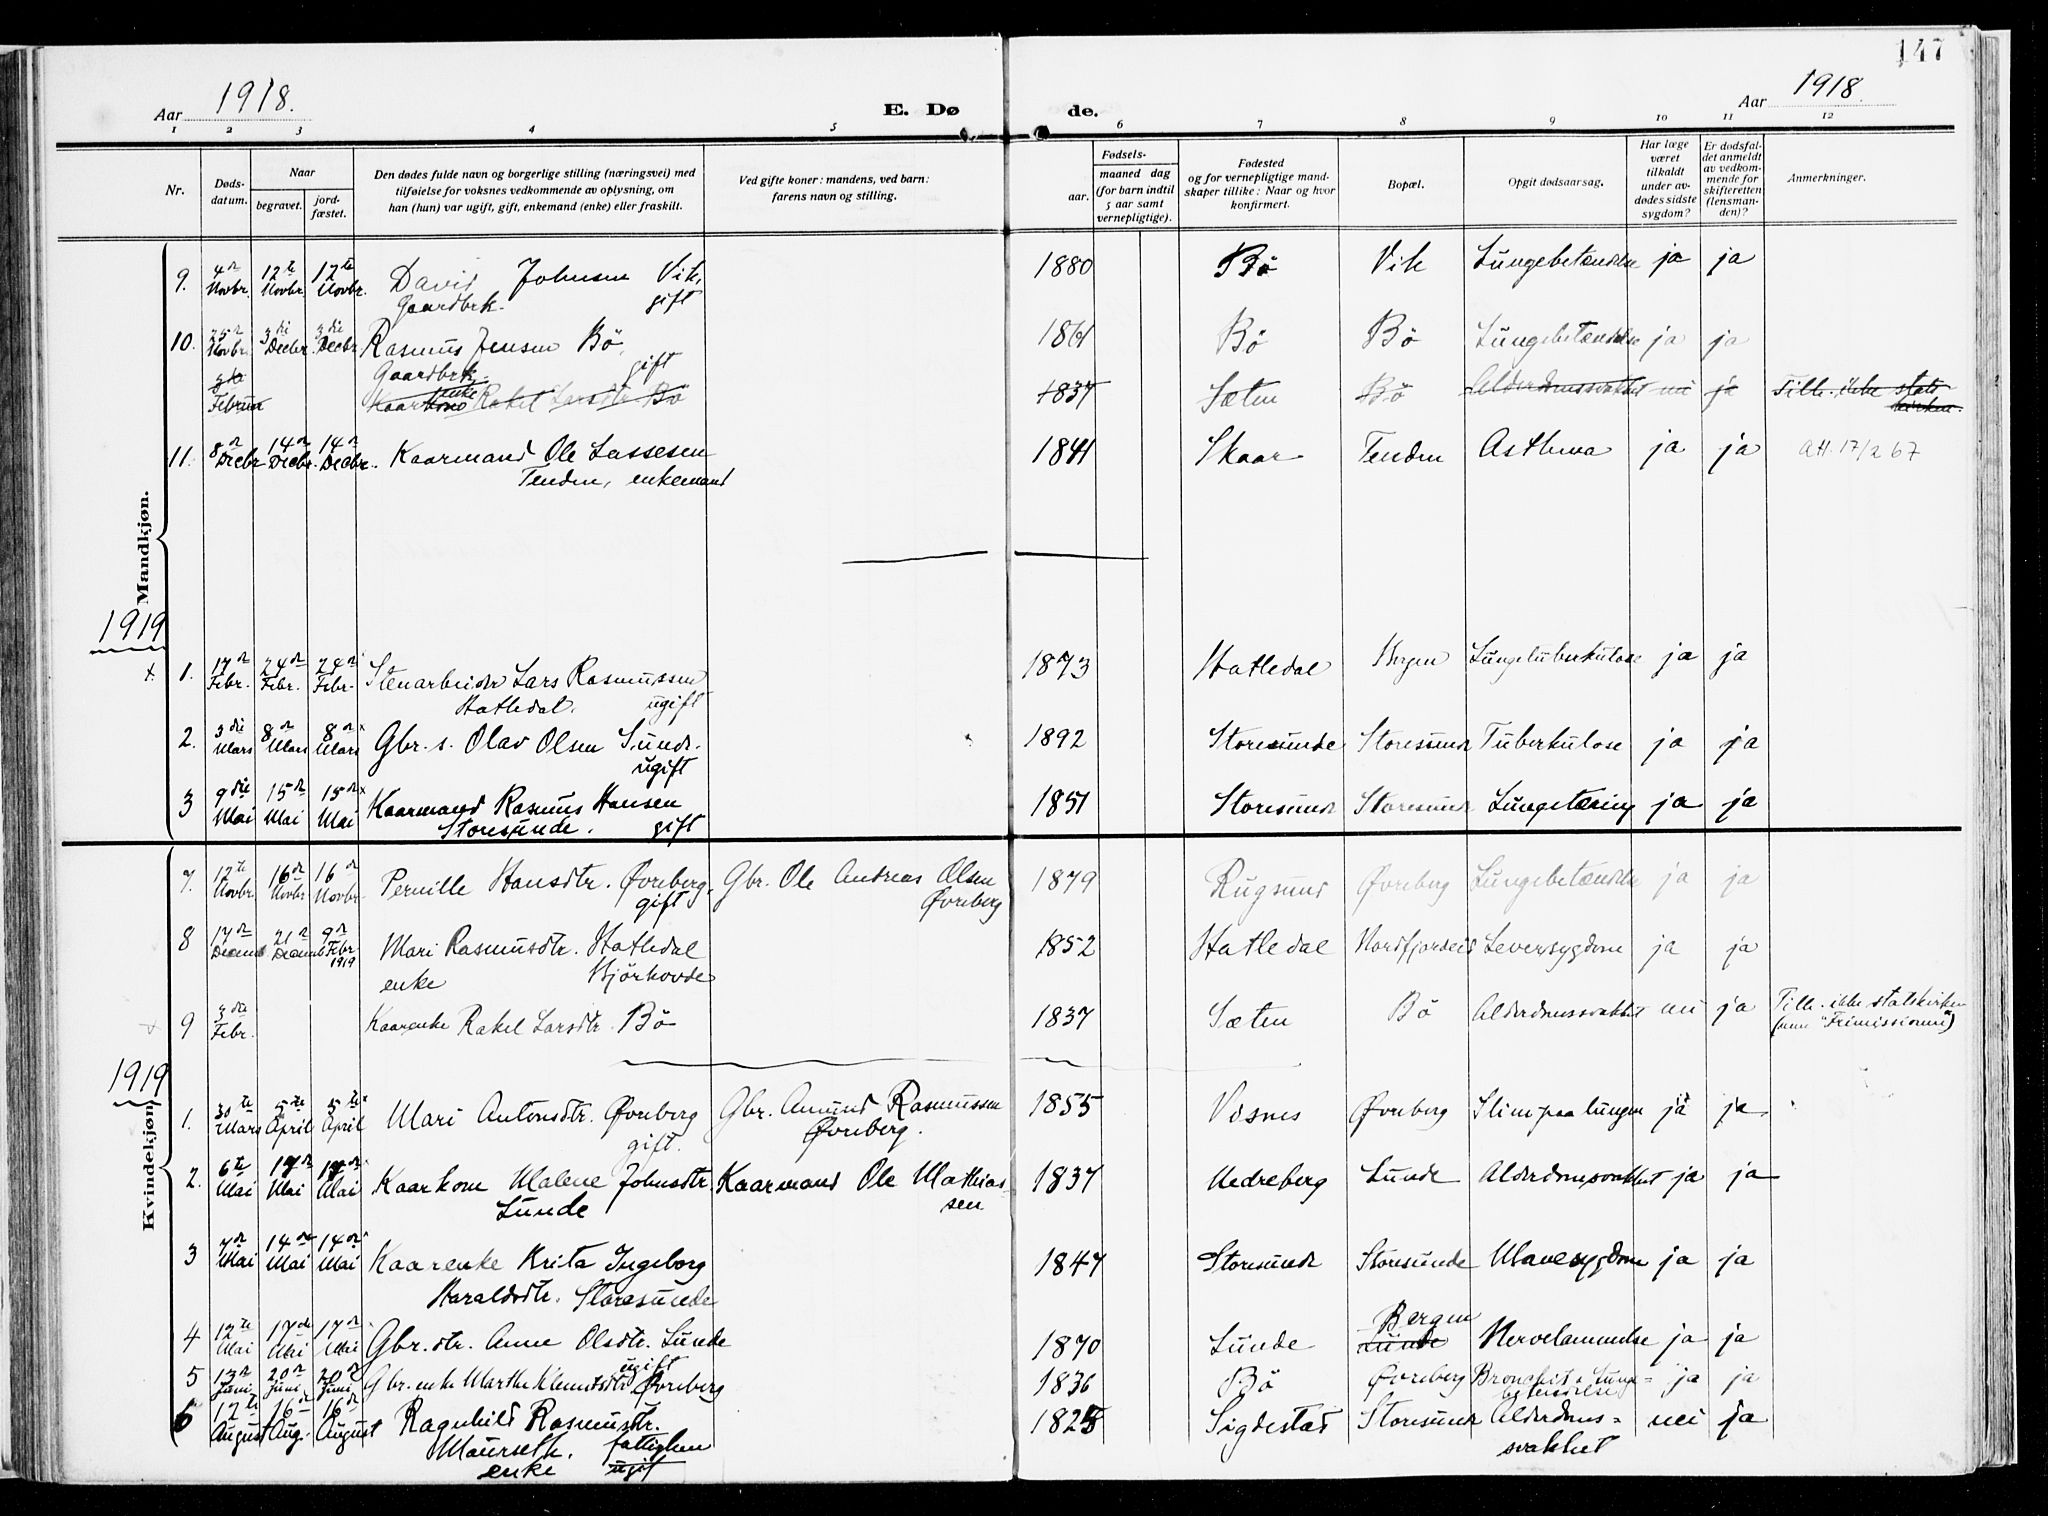 147
Aar 1918.
E. Dø
de.
Aar 1918.
1 2 3 4 5 6 7 8 9 10 11 12
Nr.
Døds-
datum.
Naar
begravet.
jord-
fæstet.
Den dødes fulde navn og borgerlige stilling (næringsvei) med
tilføielse for voksnes vedkommende av oplysning, om
han (hun) var ugift, gift, enkemand (enke) eller fraskilt.
Ved gifte koner: mandens, ved barn:
farens navn og stilling.
Fødsels-
aar.
maaned dag
(for barn indtil
5 aar samt
vernepligtige).
Fødested
og for vernepligtige mand-
skaper tillike: Naar og hvor
konfirmert.
Bopæl.
Opgit dødsaarsag.
Har læge
været
tilkaldt
under av-
dødes sidste
sygdom?
Er dødsfal-
det anmeldt
av vedkom-
mende for
skifteretten
(lensman-
den)?
Anmerkninger.
Mandkjøn.
9. 4de Novbr. 12te Novbr. 12te Novbr. David Johnsen Vik, 1880 Bö Vik Lungebetændelse ja ja
Gaardbrk. gift
10. 25de Novbr. 3die Decbr. 3die Decbr. Rasmus Jensen Bö, 1861 Bö Bö Lungebetændelse ja ja
Gaardbrk. gift
3die Februar Kaarkone enke Rakel Larsdtr. Bö 1837 Sæten Bö Alderdomssvakhet nei ja Tilh. ikke stats
kirken.
11. 8de Decbr. 14de Decbr. 14de Decbr. Kaarmand Ole Lassesen 1841 Skaar Tenden Asthma ja ja Att. 17/2 67
Tenden, enkemand
1919
+ 1. 17de Febr. 24de Febr. 24de Febr. Stenarbeider Lars Rasmussen 1873 Hatledal Bergen Lungetuberkulose ja ja
Hatledal. ugift
2. 3die Mars 8de Mars 8de Mars Gbr. s. Olav Olsen Sunde. 1892 Storesunde Storesunde Tuberkulose ja ja
ugift
3 9die Mai 15de Mai 15de Mai Kaarmand Rasmus Hansen 1851 Storesunde Storesunde Lungetæring ja ja
Storesunde. gift
Kvindekjøn.
7. 12te Novbr. 16de Novbr. 16de Novbr. Pernille Hansdtr. Øvreberg, Gbr. Ole Andreas Olsen 1879 Rugsund Øvreberg Lungebetændelse ja ja
gift Øvreberg
8 17de Decemb. 21de Decemb. 9de Febr. 1919 Mari Rasmusdtr. Hatledal 1852 Hatledal Nordfjordeid Leversygdom ja ja
enke Bjørhovde
+ 9 3die Febr. Kaarenke Rakel Larsdtr. Bö 1837 Sæten Bö Alderdomssvakhet nei ja Tilh. ikke statskirken
(men "Frimissionen")
1919
1. 30te Mars 5te April 5te April Mari Antonsdtr. Øvreberg Gbr. Amund Rasmussen 1855 Vosnes Øvreberg Slim paa lungen ja ja
gift. Øvreberg.
2. 6te Mai 17de Mai 17de Mai Kaarkone Malene Johnsdtr. Kaarmand Ole Mathias- 1837 Nedreberg Lunde Alderdomsvakhet ja ja
Lunde sen
3 7de Mai 14de Mai 14de Mai Kaarenke Krita Ingeborg 1847 Storesunde Storesunde Mavesygdom ja ja
Haraldsdtr. Storesunde
4 12te Mai 17de Mai 17de Mai Gbr. dtr. Anne Olsdtr. Lunde 1870 Lunde Lunde Bergen Nervelammelse ja ja
ugift
5 13de Juni 20de Juni 20de Juni Gbr. enke Marthe Klemetsdtr Øvreberg 1836 Bö Øvreberg Bronchit & Lunge= ja ja
betændelse
6 12te August 16de Aug. 16de August Ragnhild Rasmusdtr. 1825 Sigdestad Storesunde Alderdoms= nei ja
Maurseth. fattiglem svakhet
enke ugift